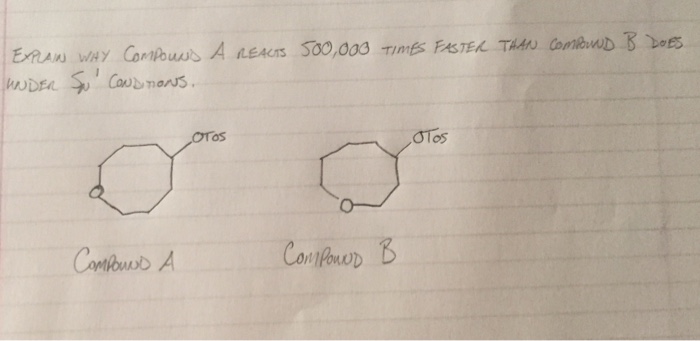 EXPLAIN WHY COMPOUND A REACTS 500,000 TIMES FASTER THAN COMPOUND B DOES
UNDER SN1 CONDITIONS.
OTos
OTos
O
O
COMPOUND A
COMPOUND B